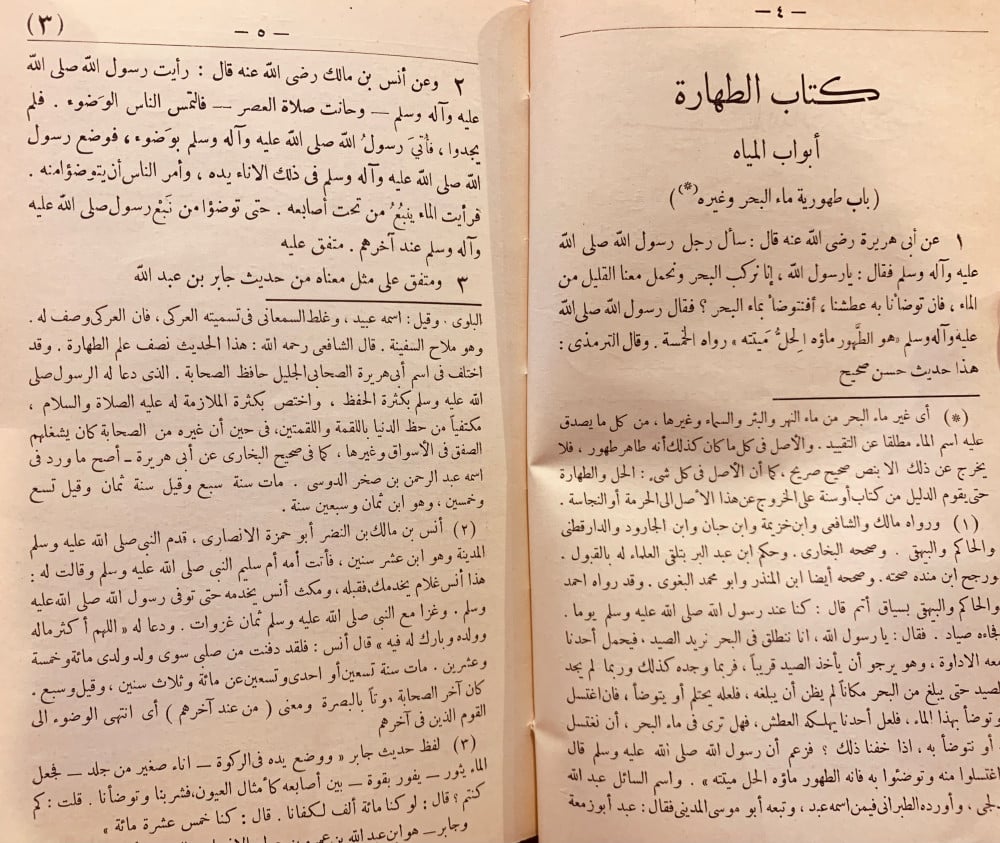 — ٤ —
كتاب الطهارة
أبواب المياه
(باب طهورية ماء البحر وغيره(*))
١ عن أبى هريرة رضى الله عنه قال : سأل رجل رسول الله صلى الله
عليه وآله وسلم فقال : يارسول الله ، إنا نركب البحر ونحمل معنا القليل من
الماء ، فان توضأنا به عطشنا ، أفنتوضأ بماء البحر ؟ فقال رسول الله صلى الله
عليه وآله وسلم «هو الطَّهُور ماؤه الحِلُّ مَيتته » رواه الخمسة . وقال الترمذى :
هذا حديث حسن صحيح
(*) أى غير ماء البحر من ماء النهر والبئر والسماء وغيرها ، من كل ما يصدق
عليه اسم الماء مطلقا عن التقييد . والأصل فى كل ما كان كذلك أنه طاهر طهور ، فلا
يخرج عن ذلك الا بنص صحيح صريح ، كما أن الأصل فى كل شىء : الحل والطهارة
حتى يقوم الدليل من كتاب أو سنة على الخروج عن هذا الأصل الى الحرمة أو النجاسة .
(١) ورواه مالك والشافعى وابن خزيمة وابن حبان وابن الجارود والدارقطنى
والحاكم والبيهقى . وصححه البخارى . وحكم ابن عبد البر بتلقى العلماء له بالقبول .
ورجح ابن منده صحته . وصححه أيضا ابن المنذر وابو محمد البغوى . وقد رواه احمد
والحاكم والبيهقى بسياق أتم قال : كنا عند رسول الله صلى الله عليه وسلم يوما .
فجاءه صياد . فقال : يارسول الله ، انا ننطلق فى البحر نريد الصيد ، فيحمل أحدنا
معه الاداوة ، وهو يرجو أن يأخذ الصيد قريباً ، فربما وجده كذلك وربما لم يجد
الصيد حتى يبلغ من البحر مكاناً لم يظن أن يبلغه ، فلعله يحتلم أو يتوضأ ، فان اغتسل
وتوضأ بهذا الماء ، فلعل أحدنا يهلكه العطش ، فهل ترى فى ماء البحر ، أن نغتسل
أو نتوضأ به ، اذا خفنا ذلك ؟ فزعم أن رسول الله صلى الله عليه وسلم قال
اغتسلوا منه وتوضئوا به فانه الطهور ماؤه الحل ميتته » . واسم السائل عبد الله
لجى ، وأورده الطبرانى فيمن اسمه عبد ، وتبعه أبو موسى المدينى فقال : عبد أبو زمعة
— ٥ — (٣)
٢ وعن أنس بن مالك رضى الله عنه قال : رأيت رسول الله صلى الله
عليه وآله وسلم — وحانت صلاة العصر — فالتمس الناس الوَضوء . فلم
يجدوا ، فأُتِىَ رسولُ الله صلى الله عليه وآله وسلم بوَضوء ، فوضع رسول
الله صلى الله عليه وآله وسلم فى ذلك الاناء يده ، وأمر الناس أن يتوضؤا منه .
فرأيت الماء ينبُعُ من تحت أصابعه . حتى توضؤا من نَبْع رسول صلى الله عليه
وآله وسلم عند آخرهم . متفق عليه
٣ ومتفق على مثل معناه من حديث جابر بن عبد الله
البلوى . وقيل : اسمه عبيد ، وغلط السمعانى فى تسميته العركى ، فان العركى وصف له .
وهو ملاح السفينة . قال الشافعى رحمه الله : هذا الحديث نصف علم الطهارة . وقد
اختلف فى اسم أبى هريرة الصحابى الجليل حافظ الصحابة . الذى دعا له الرسول صلى
الله عليه وسلم بكثرة الحفظ ، واختص بكثرة الملازمة له عليه الصلاة والسلام ،
مكتفياً من حظ الدنيا باللقمة واللقمتين ، فى حين أن غيره من الصحابة كان يشغلهم
الصفق فى الأسواق وغيرها ، كما فى صحيح البخارى عن أبى هريرة ــ أصح ما ورد فى
اسمه عبد الرحمن بن صخر الدوسى . مات سنة سبع وقيل سنة ثمان وقيل تسع
وخمسين ، وهو ابن ثمان وسبعين سنة .
(٢) أنس بن مالك بن النضر أبو حمزة الانصارى ، قدم النبى صلى الله عليه وسلم
المدينة وهو ابن عشر سنين ، فأتت أمه أم سليم النبى صلى الله عليه وسلم وقالت له :
هذا أنس غلام يخدمك فقبله ، ومكث أنس يخدمه حتى توفى رسول الله صلى الله عليه
وسلم . وغزا مع النبى صلى الله عليه وسلم ثمان غزوات . ودعا له « اللهم أكثر ماله
وولده وبارك له فيه » قال أنس : فلقد دفنت من صلبى سوى ولد ولدى مائة وخمسة
وعشرين . مات سنة تسعين أو احدى وتسعين عن مائة وثلاث سنين ، وقيل وسبع .
كان آخر الصحابة موتاً بالبصرة ومعنى ( من عند آخرهم ) أى انتهى الوضوء الى
القوم الذين فى آخرهم
(٣) لفظ حديث جابر « ووضع يده فى الركوة — اناء صغير من جلد — فجعل
الماء يثور — يفور بقوة — بين أصابعه كأمثال العيون ، فشربنا وتوضأنا . قلت : كم
كنتم ؟ قال : لو كنا مائة ألف لكفانا . قال : كنا خمس عشرة مائة »
وجابر — هو ابن عبد الله بن عمرو